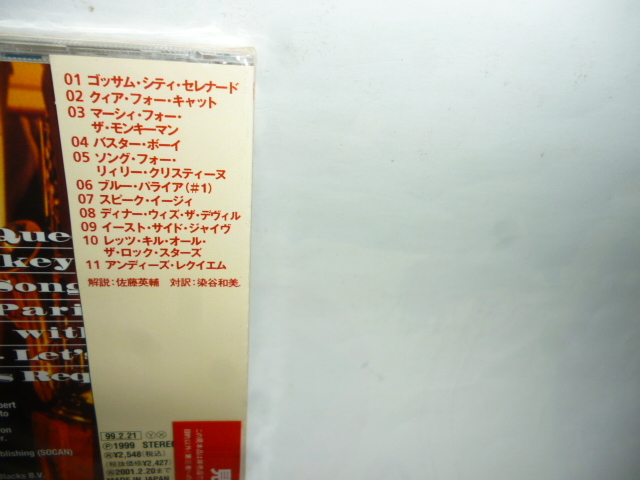 01 ゴッサム・シティ・セレナード
02 クィア・フォー・キャット
03 マーシィ・フォー・
ザ・モンキーマン
04 バスター・ボーイ
05 ソング・フォー・
リィリー・クリスティーヌ
06 ブルー・パライア(#1)
07 スピーク・イージィ
08 ディナー・ウィズ・ザ・デヴィル
09 イースト・サイド・ジャイヴ
10 レッツ・キル・オール・
ザ・ロック・スターズ
11 アンディーズ・レクイエム
解説:佐藤英輔 対訳:染谷和美
Que
key
Song
Pari
with
Let's
s Req
pert
to
on
r.
blishing (SOCAN)
ttacks B.V.
99.2.21
Ⓟ1999 STEREO
¥2,548(税込)
(税抜価格¥2,427)
2001.2.20まで
MADE IN JAPAN